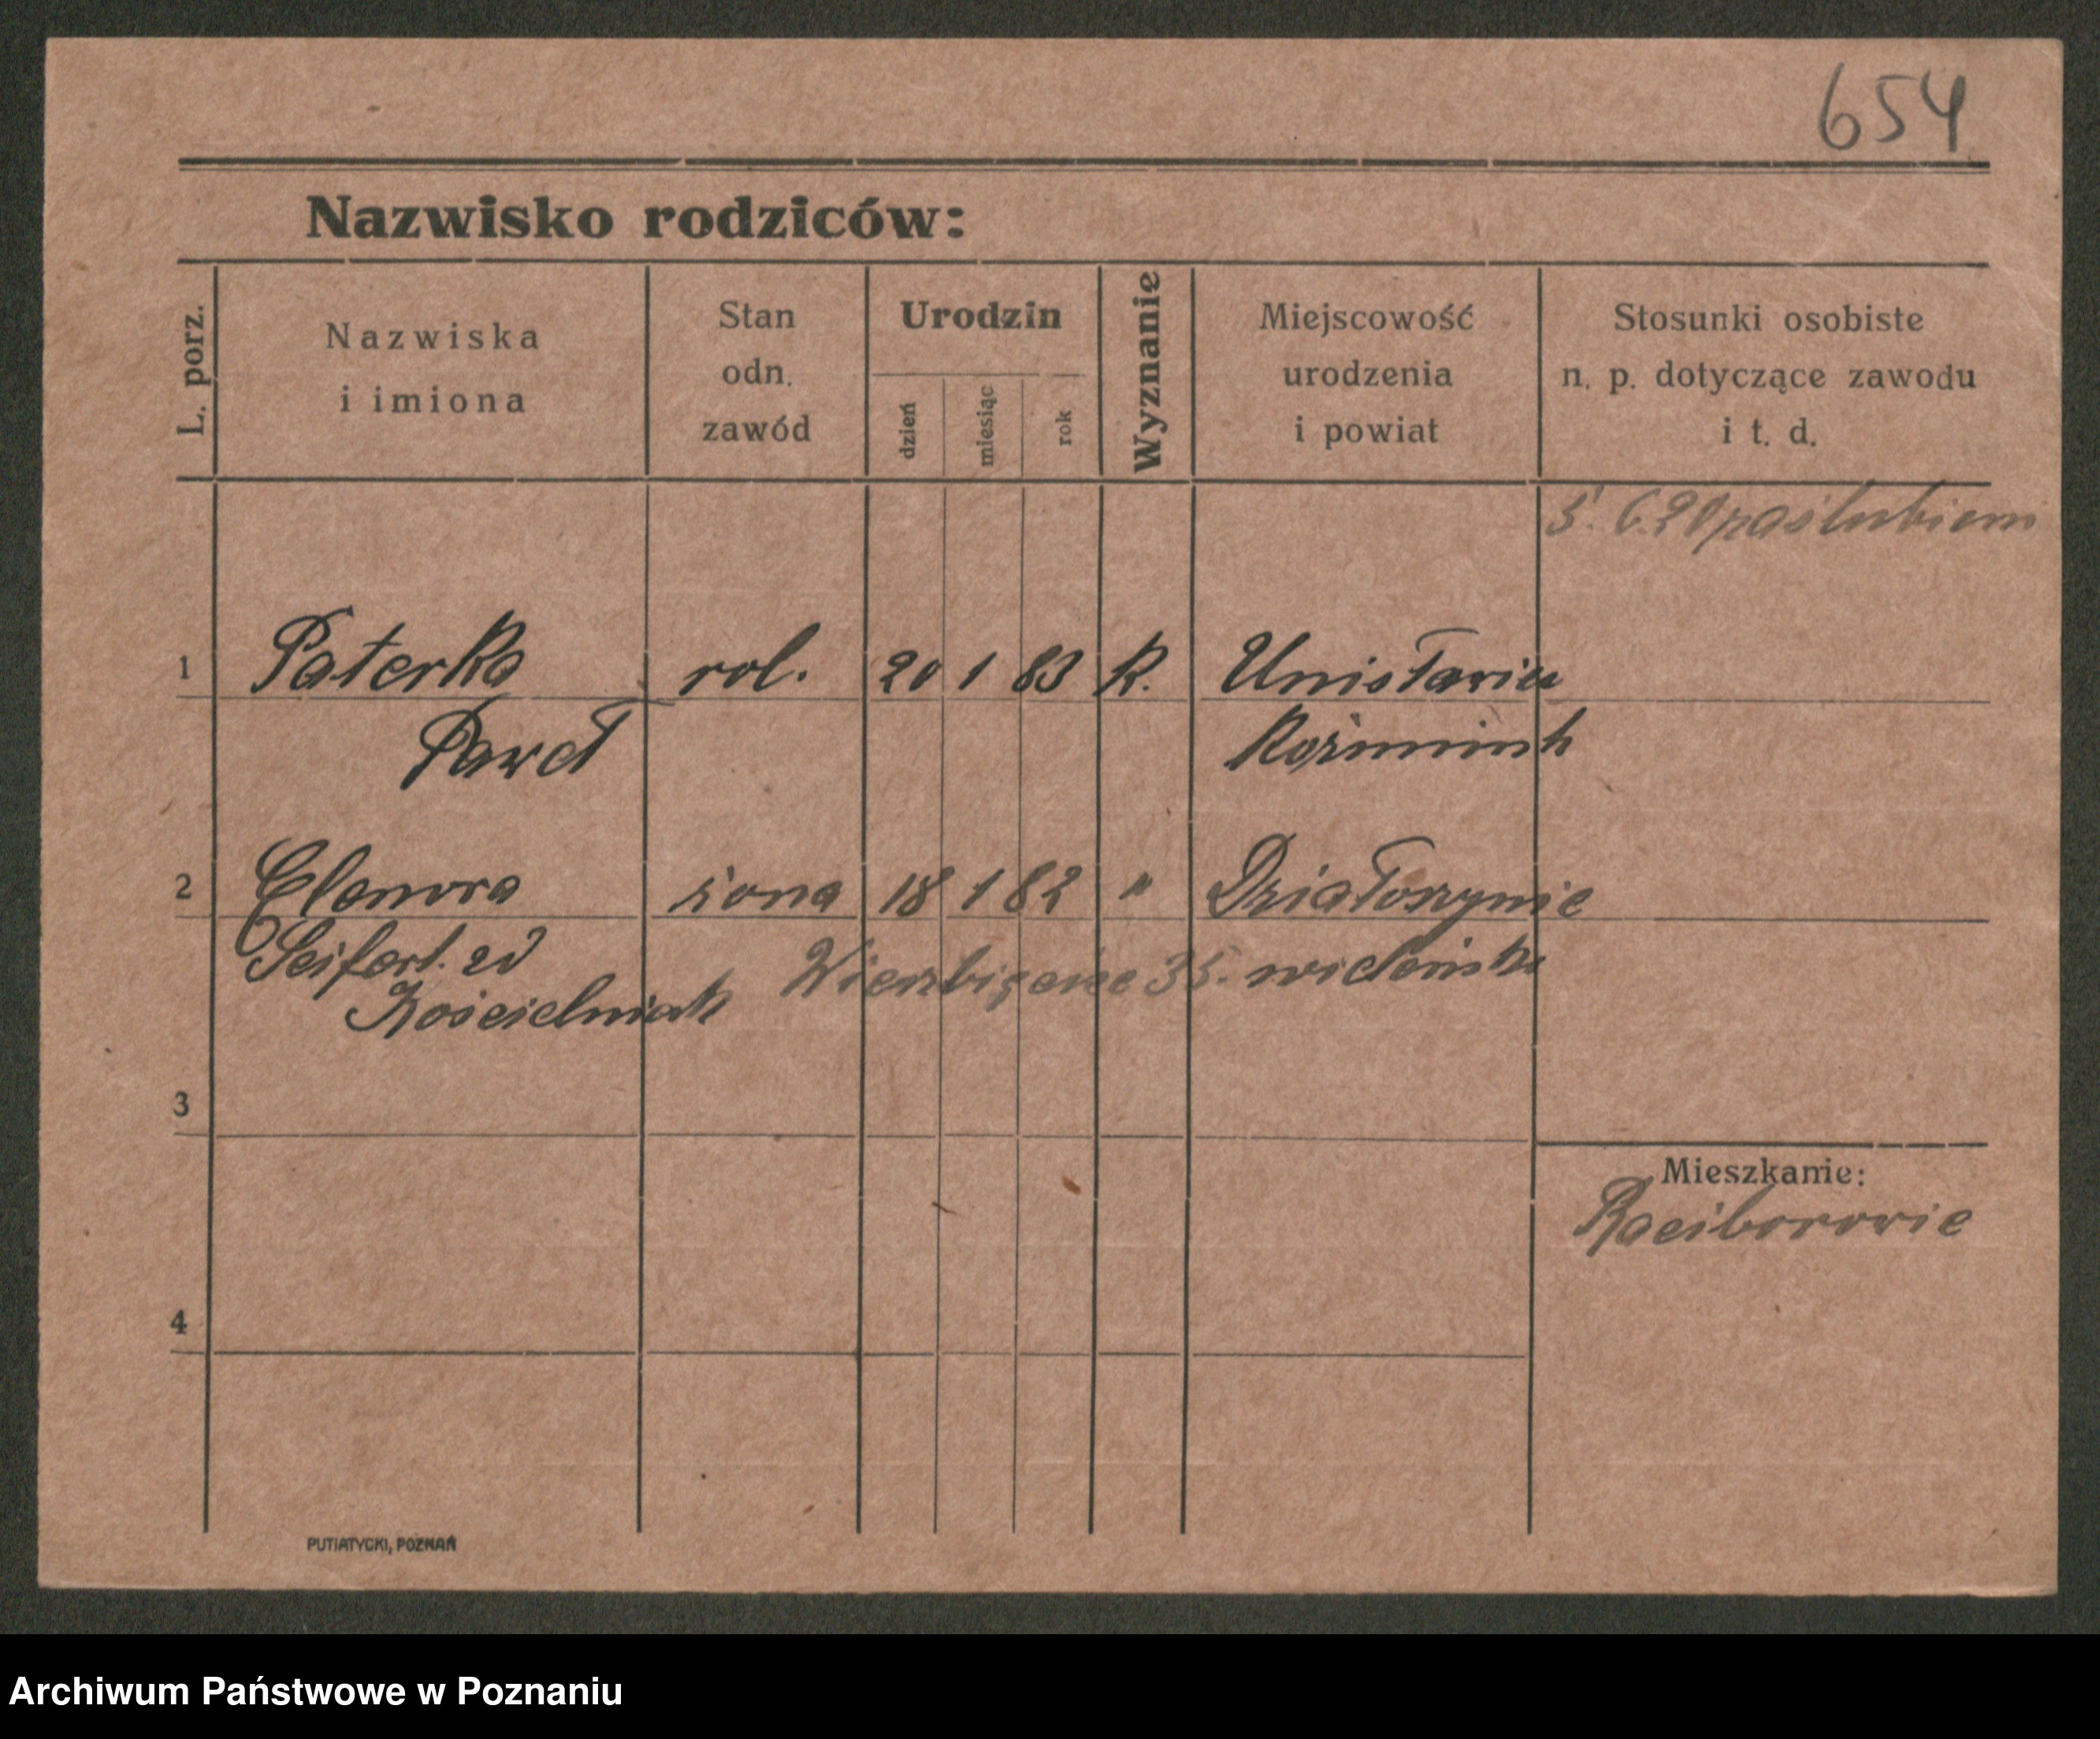 654
Nazwisko rodziców:
L. porz.
Nazwiska
i imiona
Stan
odn.
zawód
Urodzin
dzień
miesiąc
rok
Wyznanie
Miejscowość
urodzenia
i powiat
Stosunki osobiste
n. p. dotyczące zawodu
i t. d.
5. 6.20 paślubiem
1 Paterka rol. 20 1 83 R. Unisławiu
Paweł Koźminsk
2 Elenora żona 18 1 82 " Działoszynie
Seifert. zd wieluńsk
Kościelniak 35.
3
4
Mieszkanie:
Raciborowie
PUTIATYCKI, POZNAŃ
Archiwum Państwowe w Poznaniu